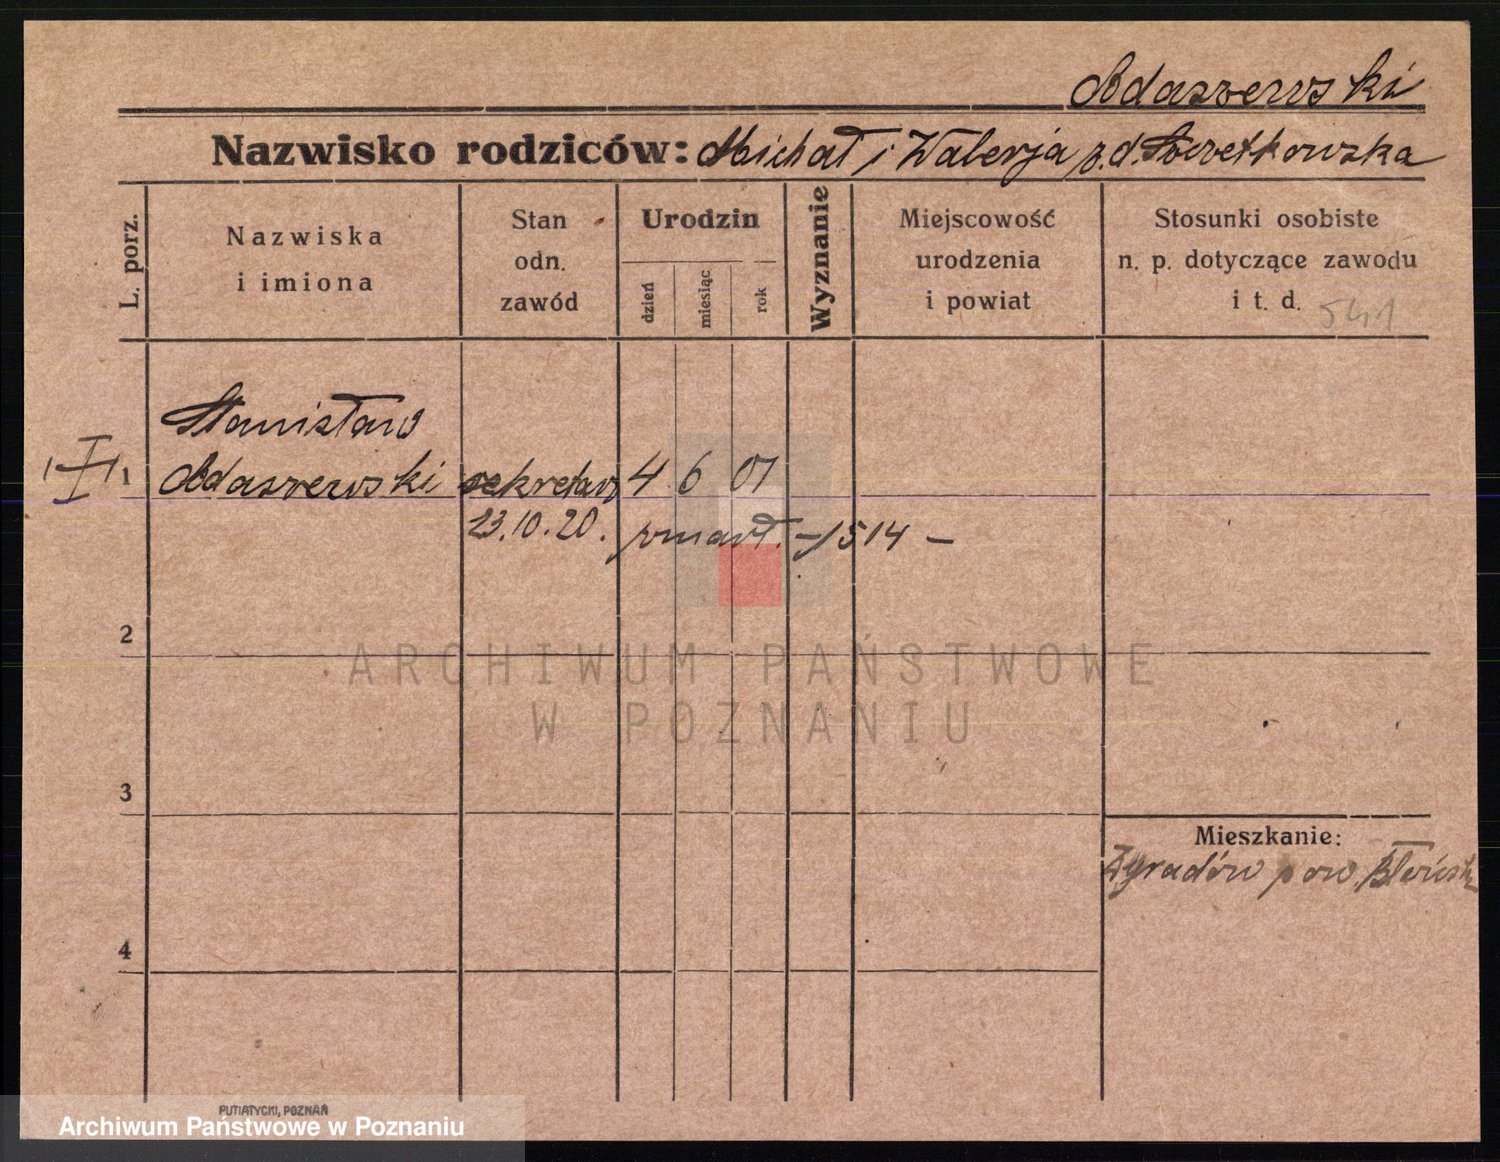 Adaszewski
Nazwisko rodziców: Michał i Walerja z.d.
L. porz.
Nazwiska
i imiona
Stan
odn.
zawód
Urodzin
dzień
miesiąc
rok
Wyznanie
Miejscowość
urodzenia
i powiat
Stosunki osobiste
n. p. dotyczące zawodu
i t. d. 541
Stanisław
I 1 Adaszewski sekretarz 4 6 01
23.10.20. zmarł. -1514-
2
ARCHIWUM PAŃSTWOWE
W POZNANIU
3
Mieszkanie:
Żyradów pow. Błońsk
4
PUTIATYCKI, POZNAŃ
Archiwum Państwowe w Poznaniu